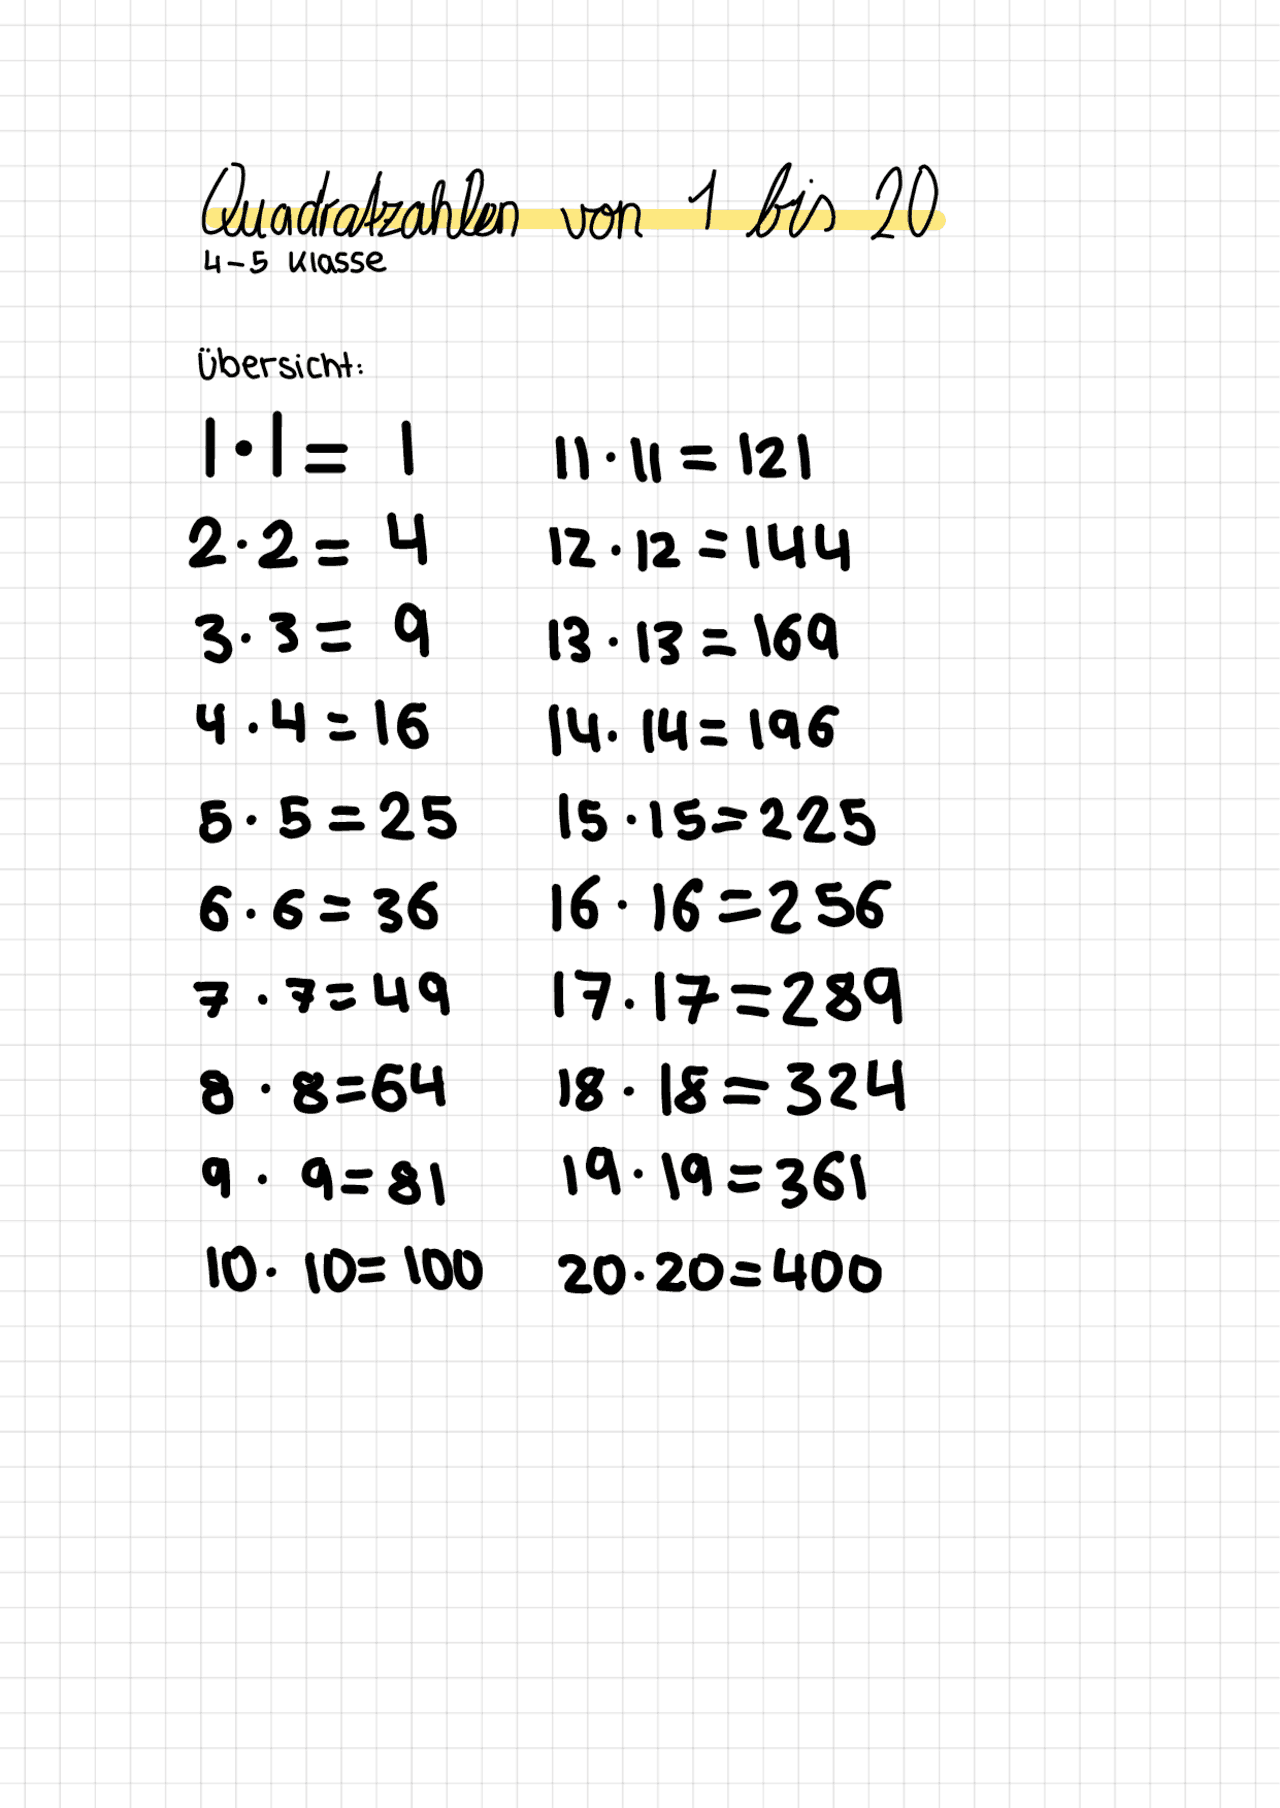 Quadratzahlen von 1 bis 20
4-5 Klasse
Übersicht:
1·1= 1
2·2= 4
3·3= 9
4·4=16
5·5=25
6·6=36
7·7=49
8·8=64
9·9=81
10·10=100
11·11=121
12·12=144
13·13=169
14·14=196
15·15=225
16·16=256
17·17=289
18·18=324
19·19=361
20·20=400